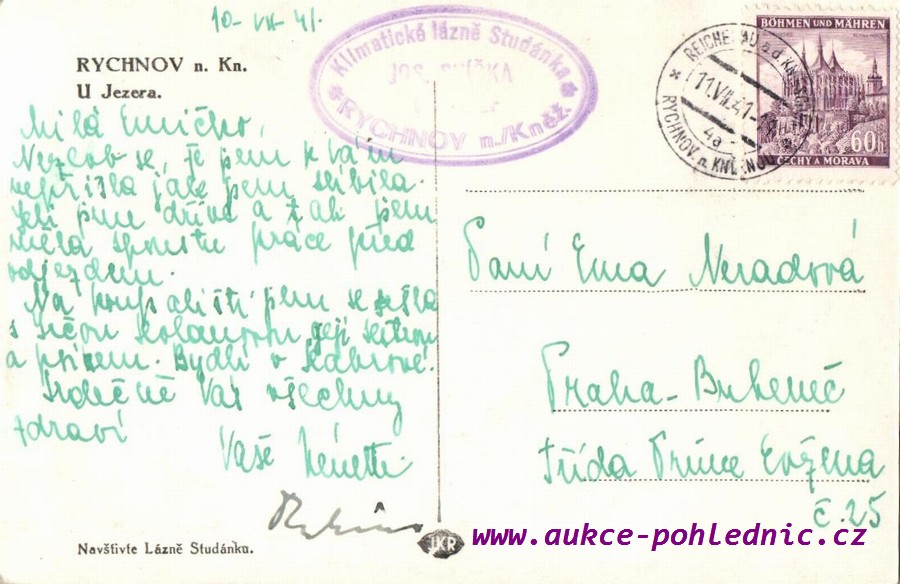 10-VII-41.
RYCHNOV n. Kn.
U Jezera.
Klimatické lázně Studánka
RYCHNOV n./Kněž
REICHENAU a.d. KNIESCHNA
11.VII.41
4a
RYCHNOV n. KNĚŽNOU
BÖHMEN UND MÄHREN
60h
ČECHY A MORAVA
Milá Emičko,
Nezlob se, že jsem k vám
nepřišla jak jsem slíbila.
Jeli jsme dříve a tak jsem
měla spoustu práce před
odjezdem.
Na koupališti jsem se sešla
s její
a psíkem. Bydlí v
Srdečně Vás všechny
zdraví
Vaše
Paní Ema Neradová
Praha-Bubeneč
třída Prince Evžena
č. 25
Navštivte Lázně Studánku.
JKR
www.aukce-pohlednic.cz